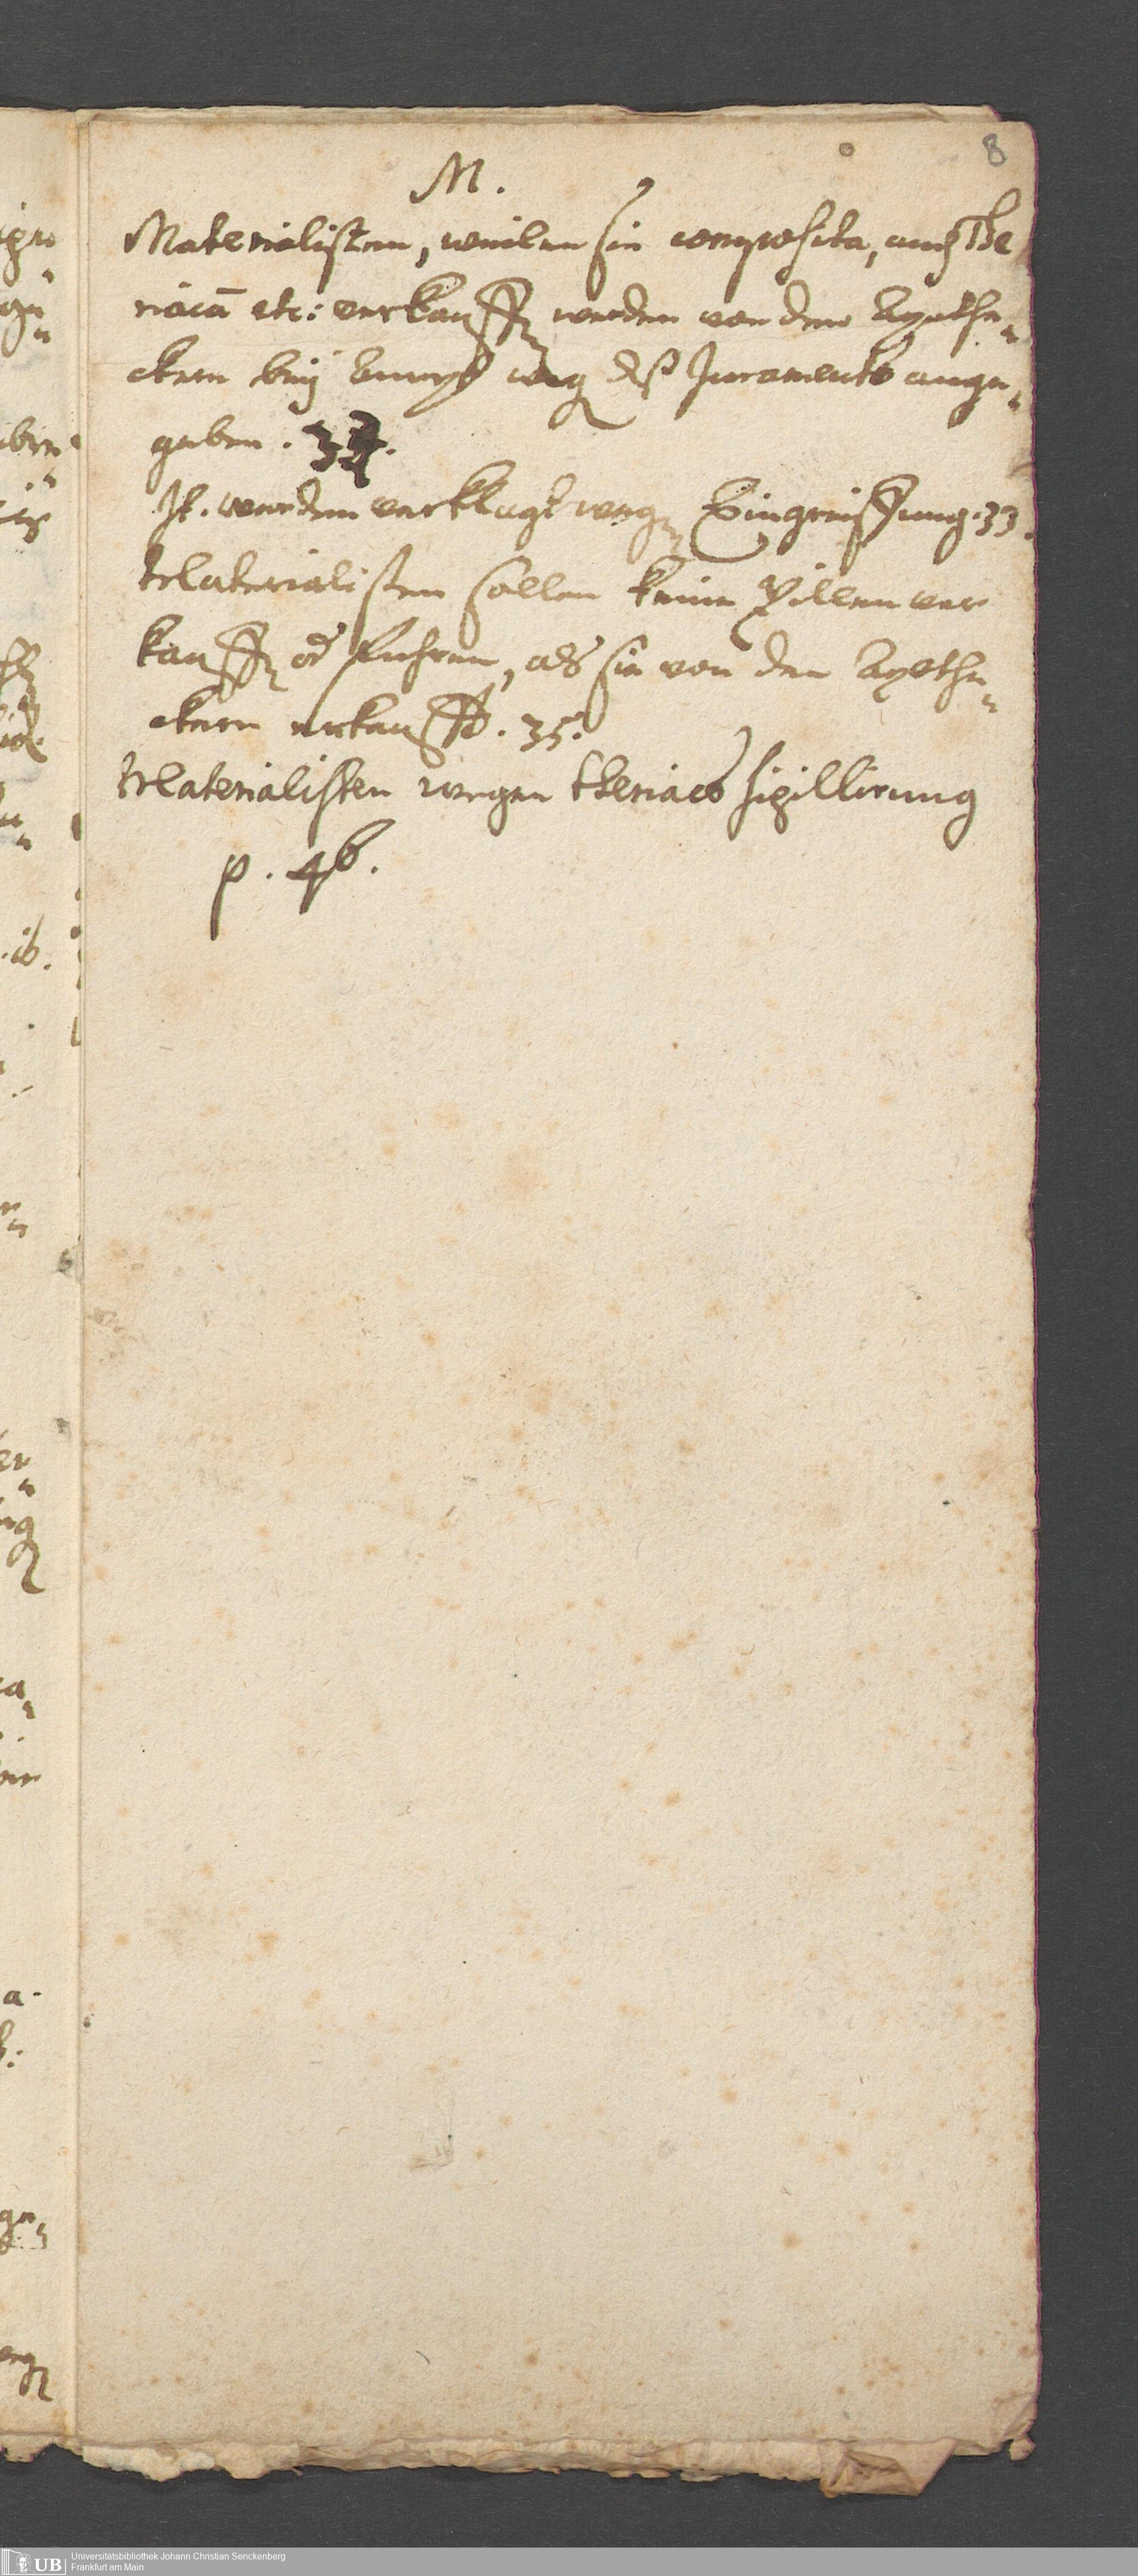 8
M.
Materialisten, weilen sie composita, auch The
riacā etc: verkauffen werden von den Apothe„
ckern beÿ Ampt weg deß Juraments ange„
geben. 34.
It. werden verklagt wegen Eingreiffung. 33.
Materialisten sollen keine Pillen ver
kauffen od führen, als sie von den Apothe„
ckern erkaufft. 35.
Materialisten wegen theriacs sigillirung
p. 46.
UB Universitätsbibliothek Johann Christian Senckenberg
Frankfurt am Main